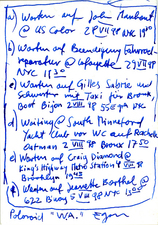 a) Warten auf John Manhart
@ US Color 28 VII 98 NYC 1900
b) Warten auf Beendigung Fahrrad-
reparatur @ Lafayette 29 VII 98
NYC 1830
c) Warten auf Gilles Sabrie und
mit Taxi für Bronx
Boat Bijou 2 VIII 98 NYC
d) Waiting @ South Minneford
Yacht Club vor WC auf Rachel
Oatman 2 VIII 98 Bronx 1750
e) Warten auf Craig Diamond @
King's Highway Station 4 VIII 98
Brooklyn 1945
f) Warten auf Jeanette Barthel @
622 Bway 5 VIII 98 NYC 1300
Polaroid "W.A." Egon